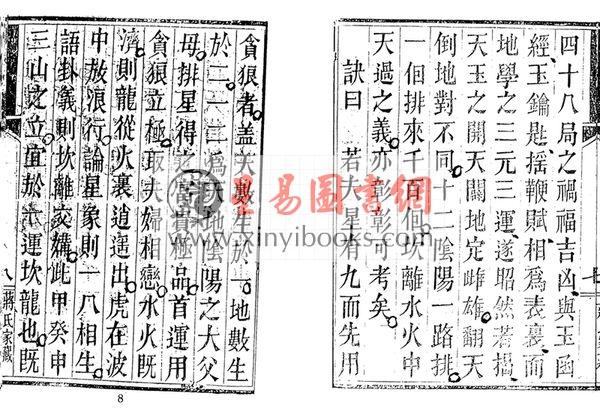 四十八局之禍福吉凶與玉函
經玉鑰匙搖鞭賦相為表裏而
地學之三元三運遂昭然若揭
天玉之開天闢地定雌雄翻天
倒地對不同十二陰陽一路排
一個排來千百個坎離水火中
天過之義亦彰彰可考矣
訣曰 若夫星有九而先用
七
貪狼者蓋天數生於一地數生
於二一二為天地陰陽之大父
母排星得之富貴極品首運用
貪狼立極取夫婦相戀水火既
濟則龍從火裏逍遥出虎在波
中放浪行論星象則一八相生
語卦義則坎離交媾此甲癸申
三山之立宜於一運坎龍也既
八 蔣氏家藏
易圖書網
www.xinyibooks.com
8